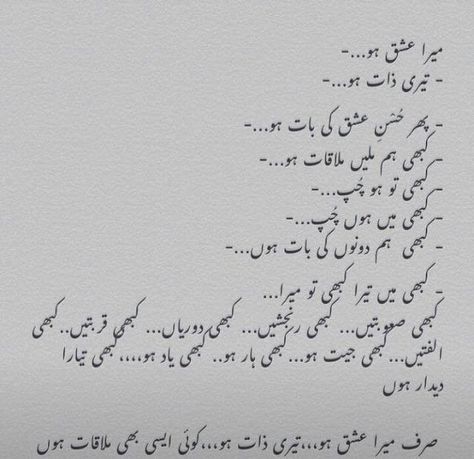 میرا عشق ہو...-
- تیری ذات ہو...-
- پھر حُسنِ عشق کی بات ہو...-
- کبھی ہم ملیں ملاقات ہو...-
- کبھی تو ہو چُپ...-
- کبھی میں ہوں چُپ...-
- کبھی ہم دونوں کی بات ہوں...-
- کبھی میں تیرا کبھی تو میرا...
کبھی صعوبتیں... کبھی رنجشیں... کبھی دوریاں... کبھی قربتیں.. کبھی
الفتیں... کبھی جیت ہو... کبھی ہار ہو.. کبھی یاد ہو،،،،کبھی تیارا
دیدار ہوں
صرف میرا عشق ہو،،،تیری ذات ہو،،،کوئی ایسی بھی ملاقات ہوں